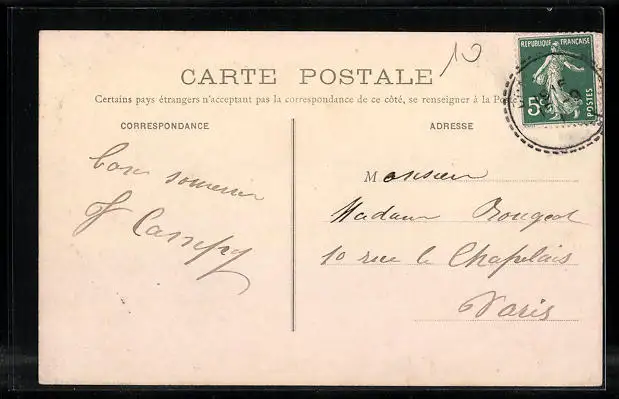 10
RÉPUBLIQUE FRANÇAISE
5c
POSTES
CARTE POSTALE
Certains pays étrangers n'acceptant pas la correspondance de ce côté, se renseigner à la Poste
CORRESPONDANCE
ADRESSE
bon souvenir
Monsieur
Madame Rougeot
10 rue le Chapelais
Paris